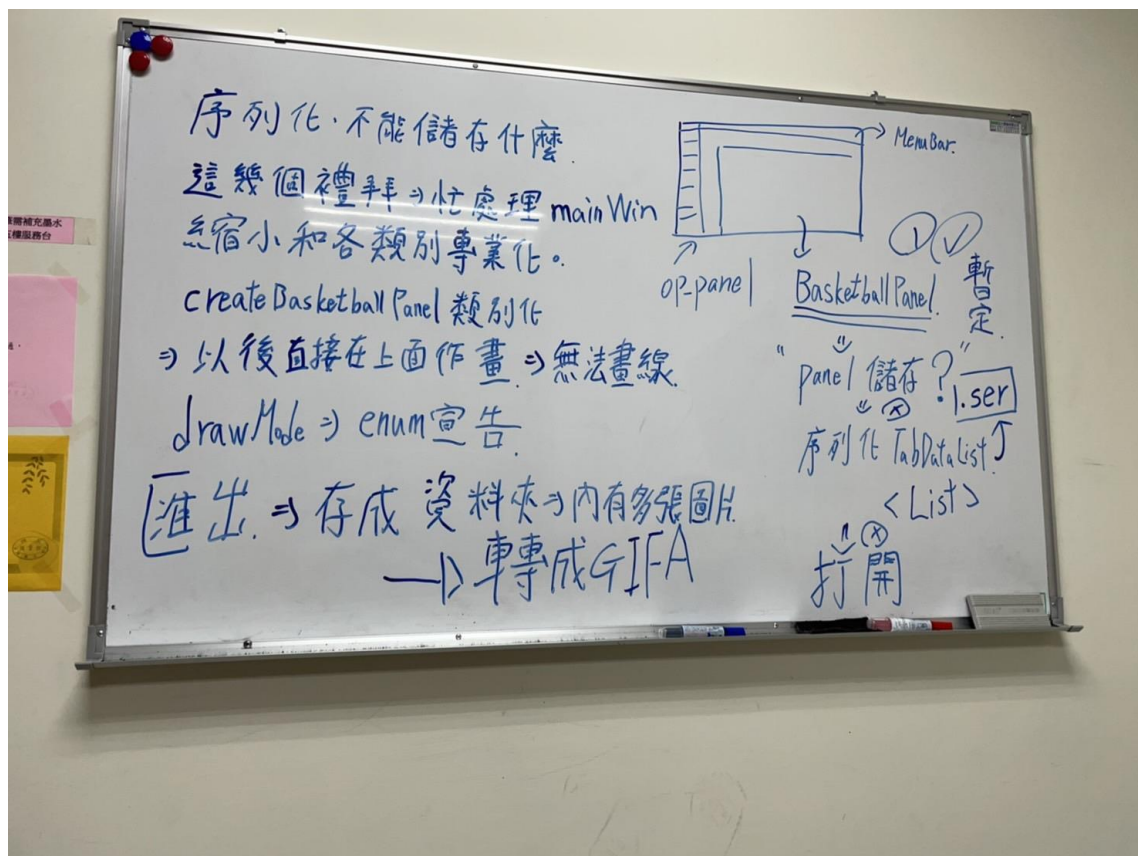 序列化.不能儲存什麼
這幾個禮拜⇒忙處理mainWin
縮小和各類別專業化。
createBasketballPanel類別化
⇒以後直接在上面作畫.⇒無法畫線.
drawMode⇒enum宣告.
匯出.⇒存成資料夾⇒內有多張圖片.
轉成GIF
MenuBar.
op-panel
BasketballPanel.
暫定.
"panel儲存?"
1.ser
序列化TabDataList
<List>
打開
需補充墨水
樓服務台